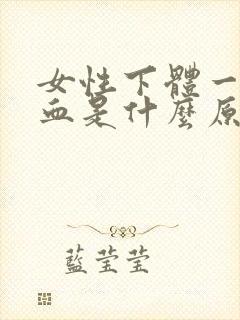 女性下體一
血是什麼原
藍莹莹